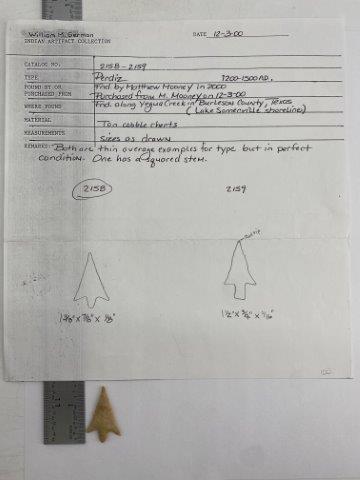 William M. German
DATE 12-3-00
INDIAN ARTIFACT COLLECTION
CATALOG NO. 2158-2159
TYPE Perdiz 1200-1500 AD.
FOUND BY OR Fnd. by Matthew Mooney in 2000
PURCHASED FROM Purchased from M. Mooney on 12-3-00
WHERE FOUND Fnd. along Yegua Creek in Burleson County, Texas
(Lake Somerville shoreline)
MATERIAL Tan cobble cherts
MEASUREMENTS Sizes as drawn
REMARKS: Both are thin average examples for type but in perfect
condition. One has a squared stem.
2158 2159
1 3/8" x 7/8" x 1/8" 1 1/2" x 3/4" x 3/16"